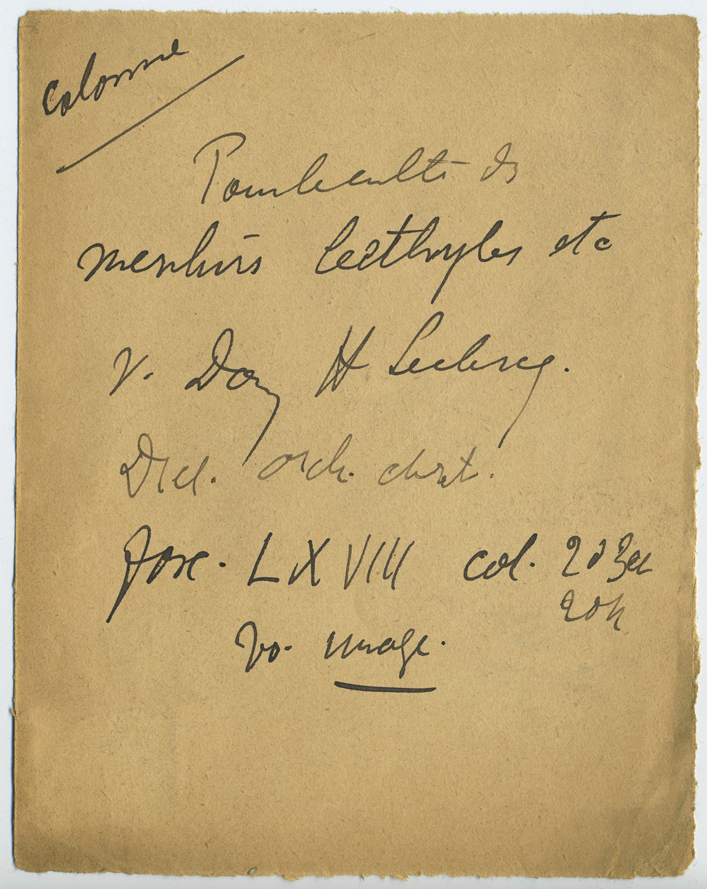 Colonne
Pour le culte des
menhirs bethyles etc
V. Dom H Leclercq.
Dict. arch. chret.
fasc. LXVIII col. 203 et
204
Vo. image.